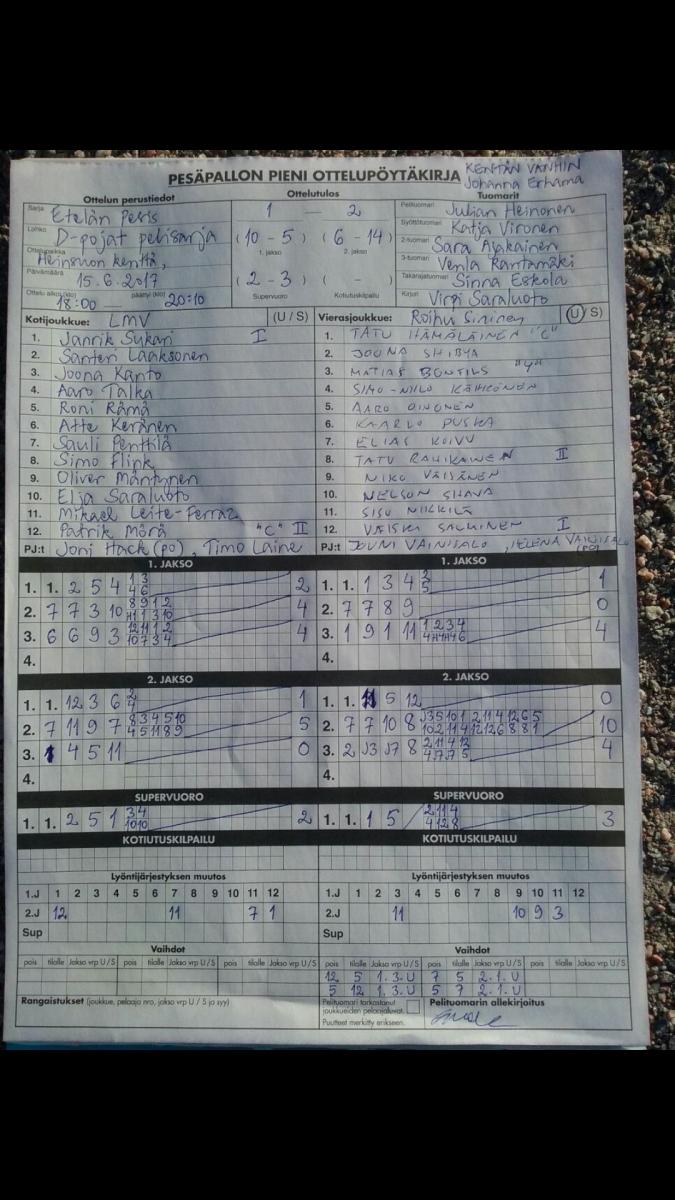 PESÄPALLON PIENI OTTELUPÖYTÄKIRJA
KENTÄN VANHIN
Johanna Erhama
Ottelun perustiedot
Sarja Etelän Pesis
Lohko D-pojat pelisarja
Ottelupaikka Heinsuon kenttä,
Päivämäärä 15.6.2017
Ottelu alkoi (klo) 18:00 päättyi (klo) 20:10
Ottelutulos
1 — 2
(10 – 5) (6 – 14)
1. jakso 2. jakso
(2 – 3) ( – )
Supervuoro Kotiutuskilpailu
Tuomarit
Pelituomari Julian Heinonen
Syöttötuomari Katja Vironen
2-tuomari Sara Ajakainen
3-tuomari Venla Rantamäki
Takarajatuomari Sinna Eskola
Kirjuri Virpi Saraluoto
Kotijoukkue: LMV (U / S)
1. Janrik Sykäri I
2. Santeri Laaksonen
3. Joona Kanto
4. Aaro Talka
5. Roni Rämä
6. Atte Keränen
7. Sauli Penttilä
8. Simo Flink
9. Oliver Mäntynen
10. Elja Saraluoto
11. Mikael Leite-Ferraz
12. Patrik Mörä "C" II
PJ:t Joni Hack (po), Timo Laine
Vierasjoukkue: Roihu Sininen (U / S)
1. TATU HÄMÄLÄINEN "C"
2. JOONA SHIBYA
3. MATIAS BONTILS "V"
4. SIMO-NIILO KÄIHKÖNEN
5. AARO OINONEN
6. KAARLO PUSKA
7. ELIAS KOIVU
8. TATU RAHIKAINEN II
9. NIKO VÄISÄNEN
10. NELSON SHAVA
11. SISU NIKKILÄ
12. VÄISKÄ SALMINEN I
PJ:t JOUNI VAINISALO, HELENA VAINISALO (PO)
1. JAKSO
1. 1. 2 5 4 1 3 2
4 6
2. 7 7 3 10 8 9 1 2 4
11 1 3 10
3. 6 6 9 3 12 11 1 2 4
10 7 3 4
4.
1. JAKSO
1. 1. 1 3 4 2 1
5
2. 7 7 8 9 0
3. 1 9 1 11 1 2 3 4 4
4 11 11 6
4.
2. JAKSO
1. 1. 12 3 6 2 1
4
2. 7 11 9 7 8 3 4 5 10 5
4 5 11 8 9
3. 1 4 5 11 0
4.
2. JAKSO
1. 1. 11 5 12 0
2. 7 7 10 8 3 5 10 1 2 11 4 12 6 5 10
10 2 11 4 12 12 6 8 8 1
3. 2 13 17 8 2 11 4 12 4
4 7 7 5
4.
SUPERVUORO
1. 1. 2 5 1 3 4 2
10 10
SUPERVUORO
1. 1. 1 5 2 11 4 3
4 12 8
KOTIUTUSKILPAILU
KOTIUTUSKILPAILU
Lyöntijärjestyksen muutos
1.J 1 2 3 4 5 6 7 8 9 10 11 12
2.J 12 11 7 1
Sup
Lyöntijärjestyksen muutos
1.J 1 2 3 4 5 6 7 8 9 10 11 12
2.J 11 10 9 3
Sup
Vaihdot
pois tilalle Jakso vrp U / S pois tilalle Jakso vrp U / S pois tilalle Jakso vrp U / S
Vaihdot
pois tilalle Jakso vrp U / S pois tilalle Jakso vrp U / S pois tilalle Jakso vrp U / S
12 5 1. 3. U 7 5 2. 1. U
5 12 1. 3. U 5 7 2. 1. U
Rangaistukset (joukkue, pelaaja nro, jakso vrp U / S ja syy)
Pelituomari tarkastanut
joukkueiden pelaajaluvat.
Puutteet merkitty erikseen.
Pelituomarin allekirjoitus